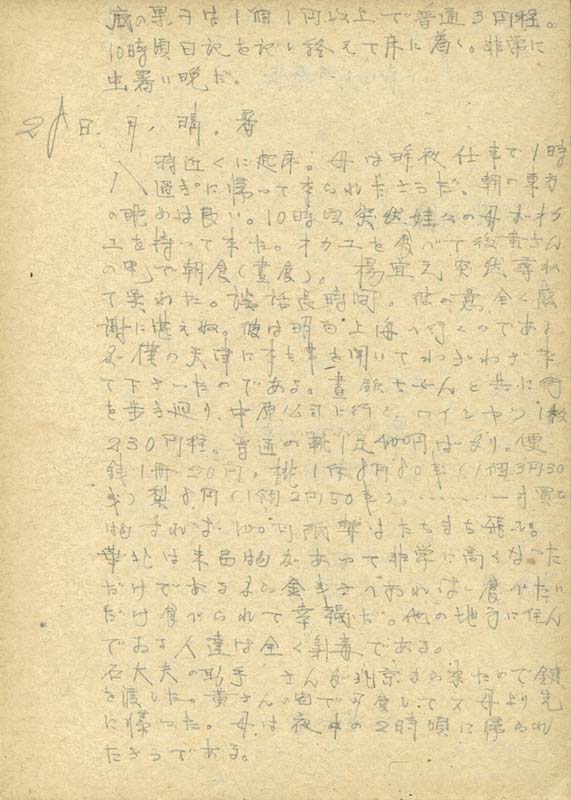 の菓子は1個1円以上で普通3円程。
10時頃日記を記し終えて床に着く。非常に
虫暑い晩だ。
日、月、晴。暑
時近くに起床。母は昨夜仕事で1時
過ぎに帰って来られたそうだ。朝の東方
の眺めは良い。10時頃突然娃々の母がオカ
ユを持って来た。オカユを食べて後黄さん
の宅で朝食(昼食)。楊宜元突然尋ね
て来られた。談話長時間。彼の意全く感
謝に堪えぬ。彼は明日上海へ行くのである
が僕の天津に来た事を聞いてわざわざ来
て下さったのである。昼飯ちゃんと共に街
を歩き廻り、中原公司に行く。ワイシャツ1枚
230円程。普通の靴1足400円ばかり。便
銭1冊20円。桃1斤8円80銭(1個3円30
銭)梨8円(1個2円50銭)。……一寸買
物すれば100円紙幣はたちまち飛ぶ。
華北は来西物があって非常に高くなった
だけであるから金さえあれば食べたい
だけ食べられて幸福だ。他の地方に住ん
でおる人達は全く気毒である。
石大夫の助手 さんが北京から来たので鍵
を渡した。黄さんの宅で夕食して父母より先
に帰った。母は夜中の2時頃に帰られ
たそうである。